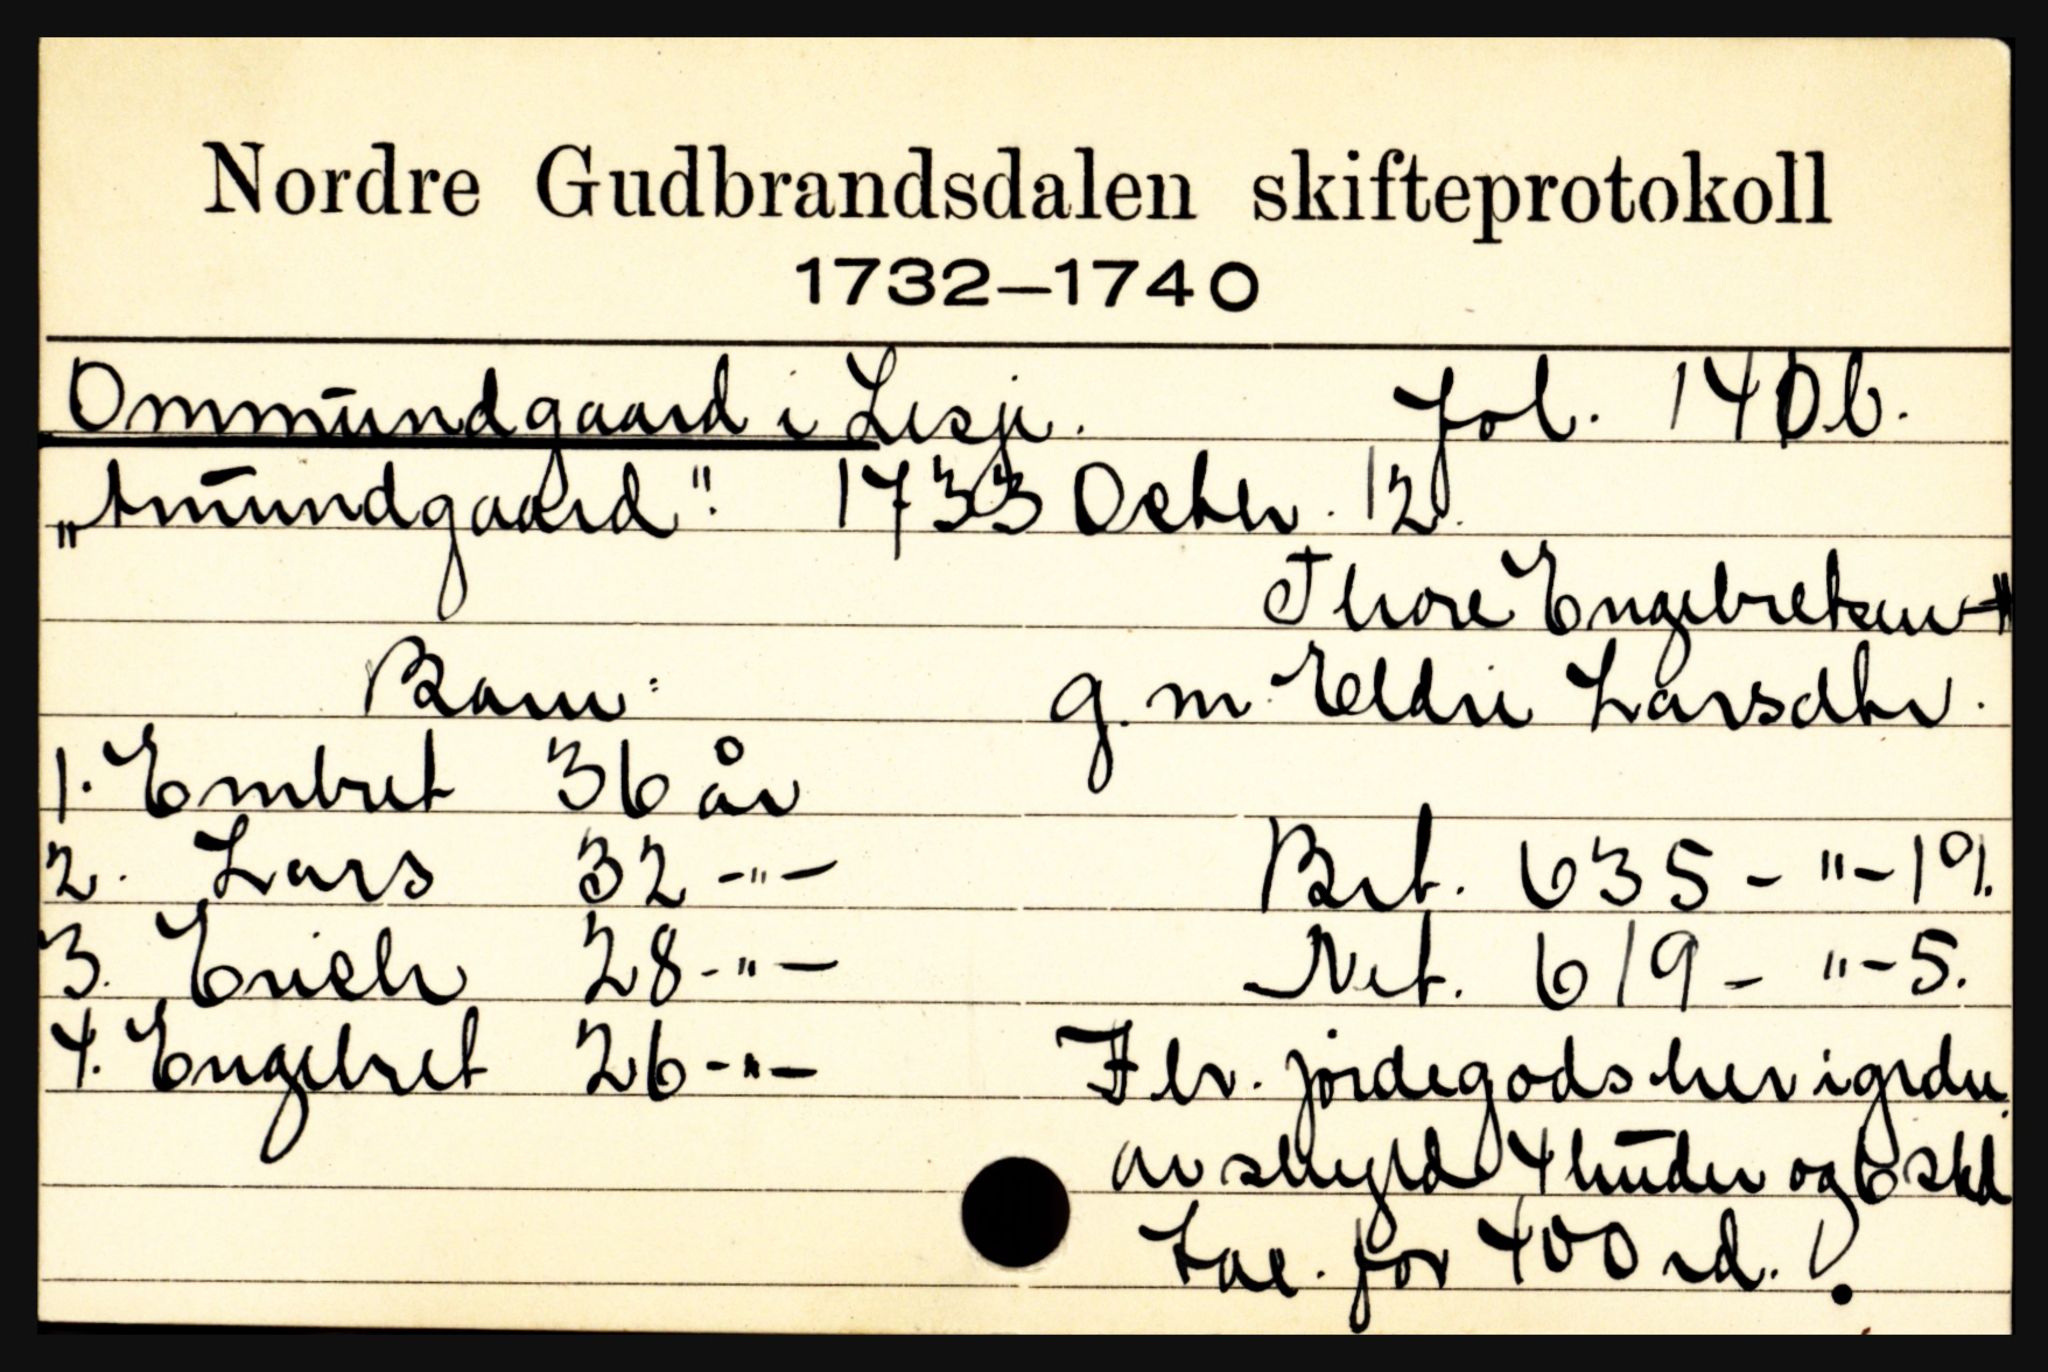 Nordre Gudbrandsdalen skifteprotokoll
1732—1740
Ommundgaard i Lesje. fol. 140b.
„Amundgaard". 1733 Octbr. 12.
Thore Engebretsen †
Barn: g. m. Eldri Larsdtr.
1. Embret 36 år
2. Lars 32 -"-
Brt. 635 - "- 19.
3. Erich 28 -"-
Net. 619 - "- 5.
4. Engebret 26 -"-
jordegods her i grdn.
av skyld 4 huder og 6 skd
tax. for 400 rd. !